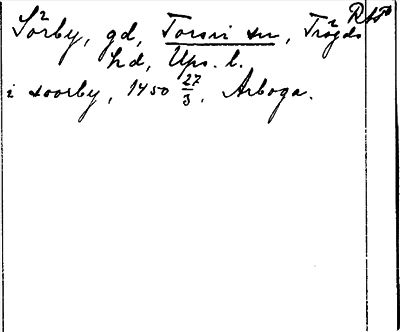 Sörby, gd, Torsvi sn, Trögds
hd, Ups. l.
i soorby, 1450 27/3. Arboga.